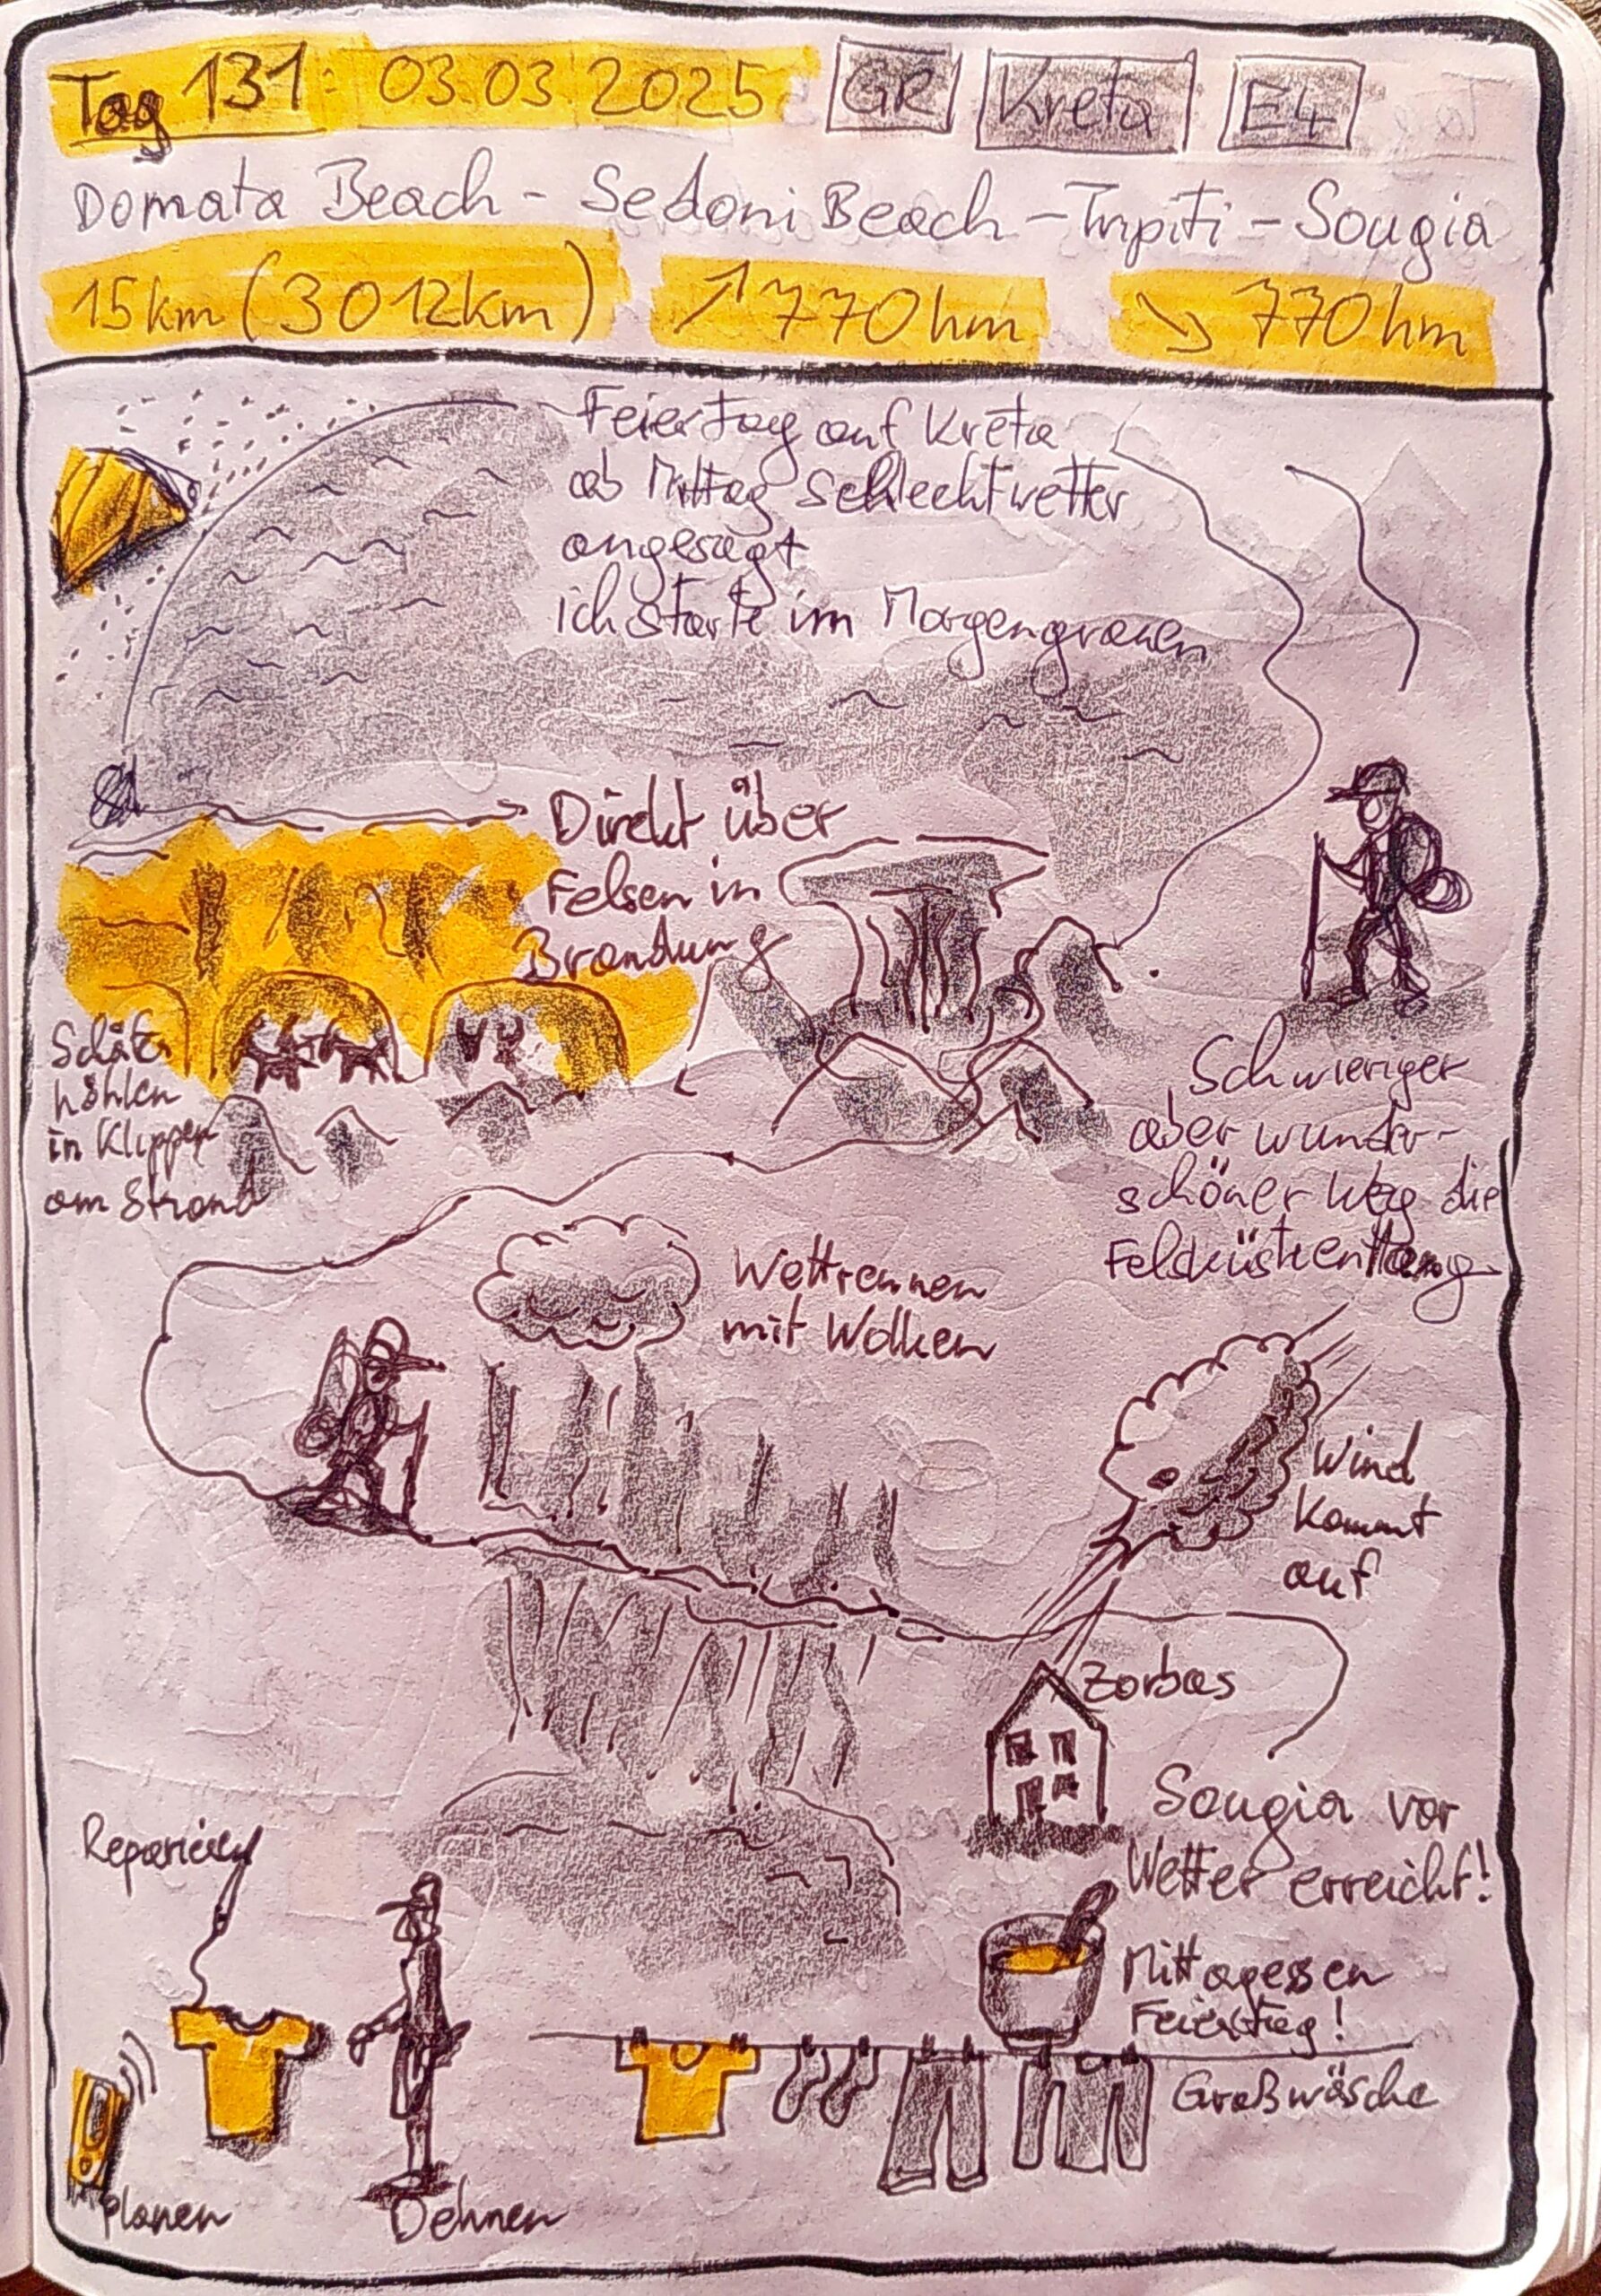 Tag 131: 03.03 2025 GR Kreta E4
Domata Beach - Sedoni Beach - Tripiti - Sougia
15km (3012km) ↗ 770hm ↘ 770hm
Feiertag auf Kreta
ab Mittag Schlechtwetter
angesagt
ich starte im Morgengrauen
Direkt über
Felsen in
Brandung
Schaf
höhlen
in Klippen
am Strand
Schwieriger
aber wunder-
schöner Weg die
Felsküste entlang
Wettrennen
mit Wolken
Wind
kommt
auf
Zorbas
Sougia vor
Wetter erreicht!
Reparieren
Mittagessen
Feiertag!
Großwäsche
Planen
Dehnen